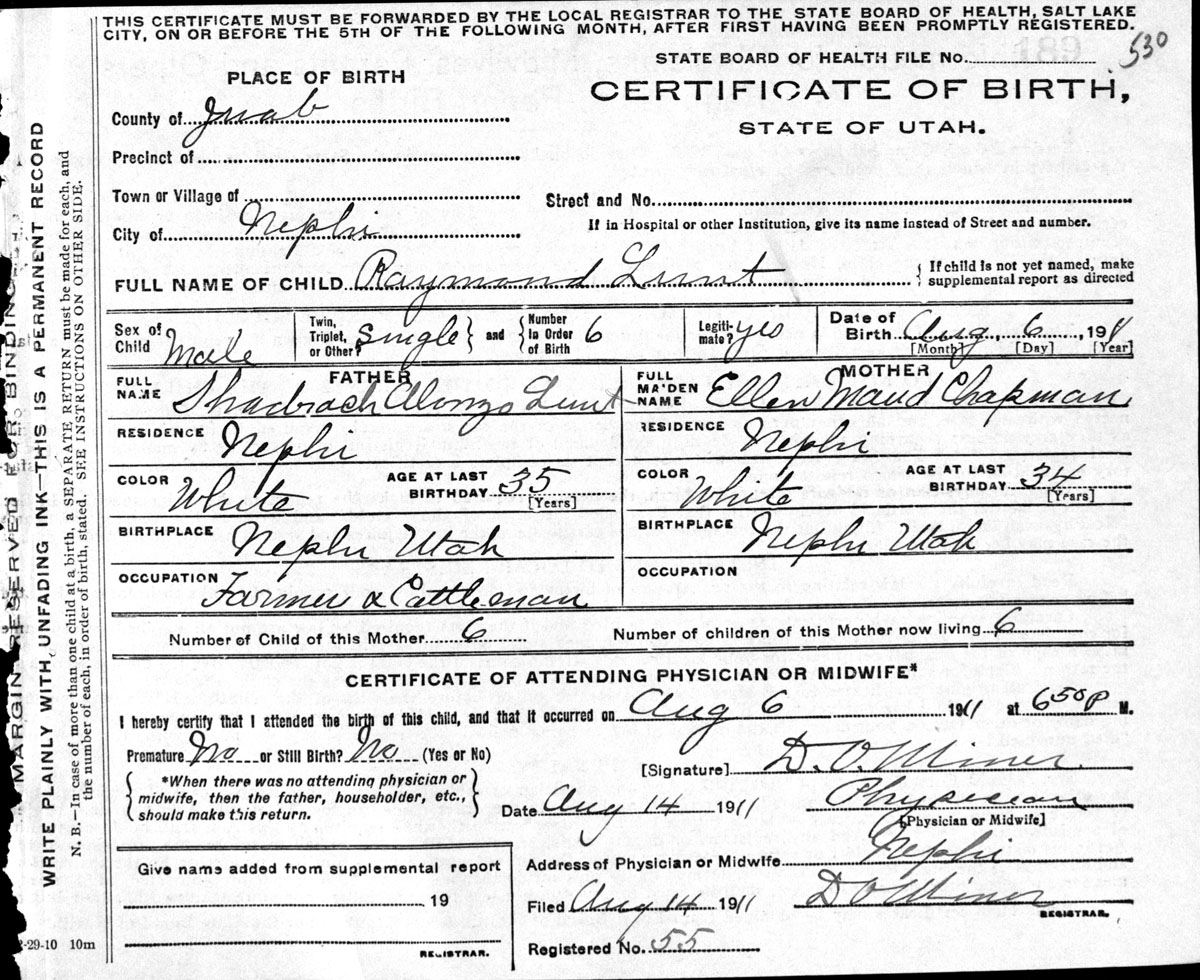 THIS CERTIFICATE MUST BE FORWARDED BY THE LOCAL REGISTRAR TO THE STATE BOARD OF HEALTH, SALT LAKE
CITY, ON OR BEFORE THE 5TH OF THE FOLLOWING MONTH, AFTER FIRST HAVING BEEN PROMPTLY REGISTERED.
530
STATE BOARD OF HEALTH FILE No.
PLACE OF BIRTH
CERTIFICATE OF BIRTH,
STATE OF UTAH.
County of Juab
Precinct of
Town or Village of
Street and No.
City of Nephi
If in Hospital or other Institution, give its name instead of Street and number.
FULL NAME OF CHILD Raymond Lunt
If child is not yet named, make
supplemental report as directed
Sex of Child Male
Twin, Triplet, or Other? Single and Number In Order of Birth 6
Legitimate? yes
Date of Birth Aug. 6, 1911
[Month] [Day] [Year]
FATHER
FULL NAME Shadrach Alonzo Lunt
RESIDENCE Nephi
COLOR White AGE AT LAST BIRTHDAY 35
[Years]
BIRTHPLACE Nephi Utah
OCCUPATION Farmer & Cattleman
MOTHER
FULL MAIDEN NAME Ellen Maud Chapman
RESIDENCE Nephi
COLOR White AGE AT LAST BIRTHDAY 34
[Years]
BIRTHPLACE Nephi Utah
OCCUPATION
Number of Child of this Mother 6 Number of children of this Mother now living 6
CERTIFICATE OF ATTENDING PHYSICIAN OR MIDWIFE*
I hereby certify that I attended the birth of this child, and that it occurred on Aug 6 1911 at 6 50 P M.
Premature No or Still Birth? No (Yes or No)
*When there was no attending physician or
midwife, then the father, householder, etc.,
should make this return.
[Signature] D. O. Miner
Date Aug 14 1911 Physician
[Physician or Midwife]
Address of Physician or Midwife Nephi
Filed Aug 14 1911 D O Miner
REGISTRAR.
Registered No. 55
Give name added from supplemental report
19
REGISTRAR.
2-29-10 10m
MARGIN RESERVED FOR BINDING
WRITE PLAINLY WITH UNFADING INK—THIS IS A PERMANENT RECORD
N. B.—In case of more than one child at a birth, a SEPARATE RETURN must be made for each, and
the number of each, in order of birth, stated. SEE INSTRUCTIONS ON OTHER SIDE.